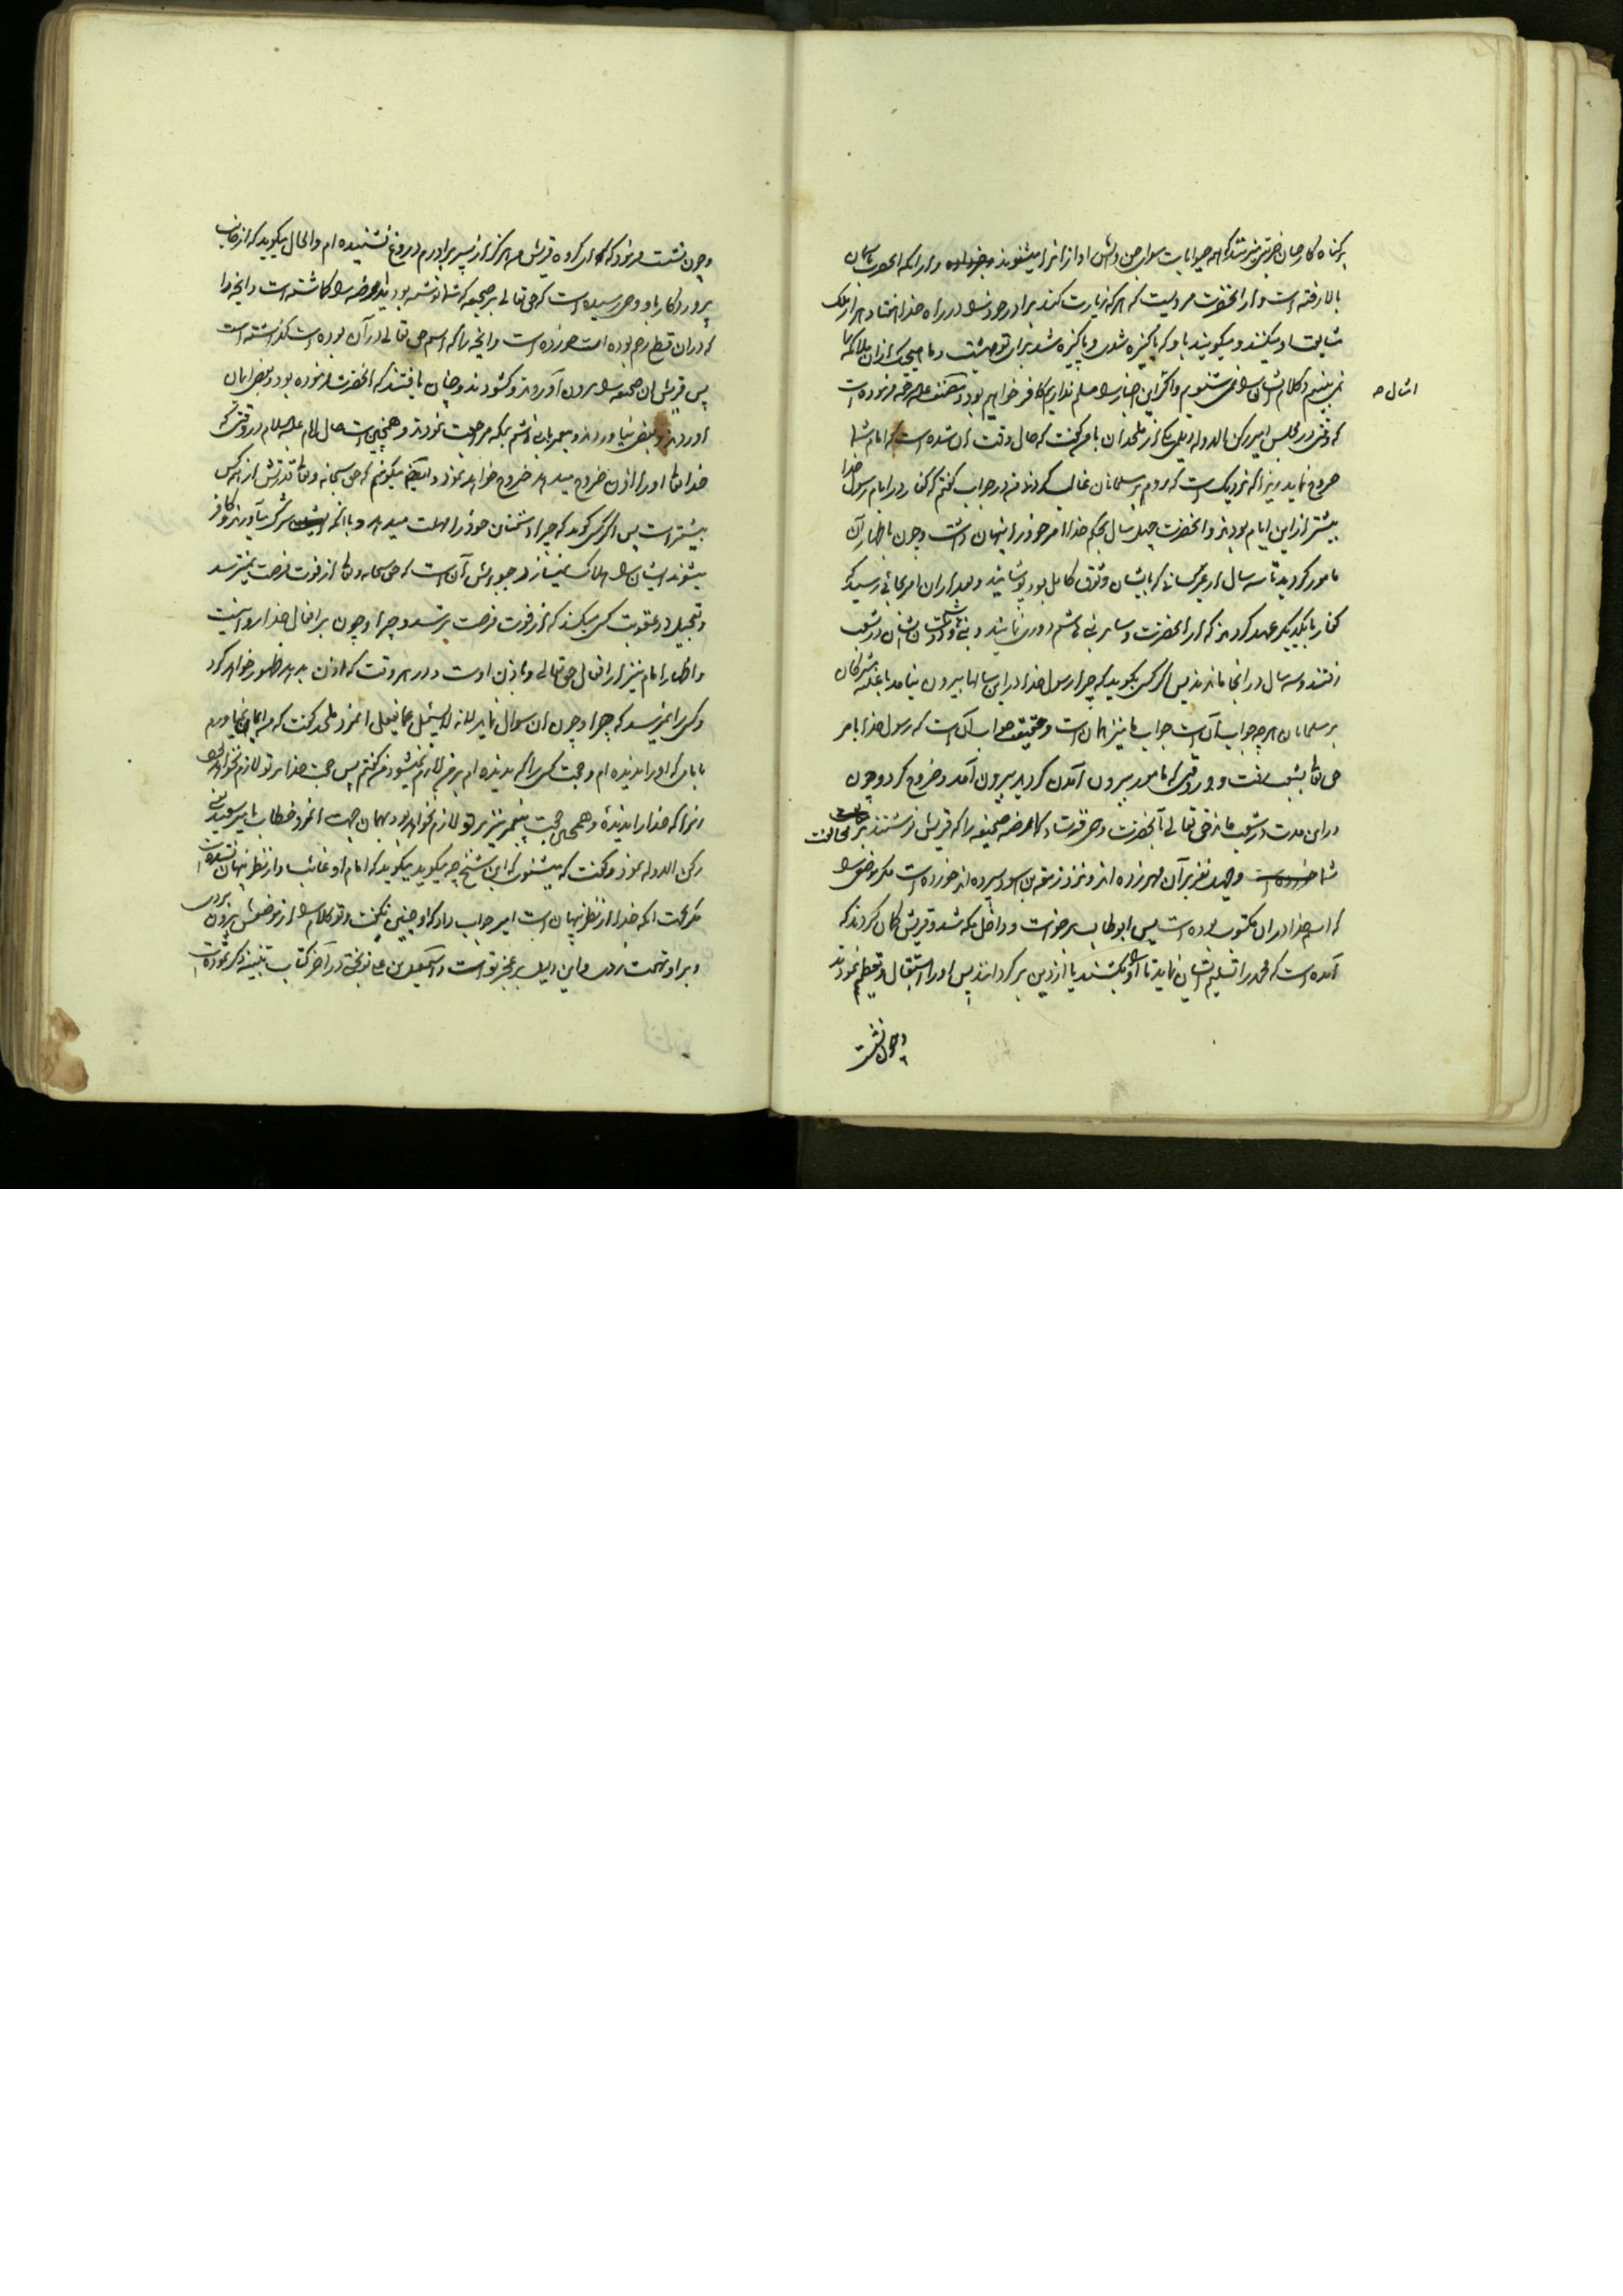 بالا رفته است و از آنحضرت مرویست که هر که زیارت کند برادر خود را در راه خدا هفتاد هزار ملک
مشایعت او میکنند و میگویند با و که پاکیزه شدی و پاکیزه شد برای تو بهشت و ما هیچیک از ان ملائکه
نمی بینیم و کلام ایشان را نمی شنویم و اگر این اخبار را مسلم نداریم کافر خواهیم بود و مصنف علیه الرحمه فرموده است
امثال
که وقتی در مجلس امیر رکن الدوله دیلمی یکی از ملحدان بامن گفت که حال وقت آن شده است که امام شما
خروج نماید زیرا که نزدیک است که روم بر مسلمانان غالب گردند من در جواب گفتم که کفار در ایام رسول خدا
بیشتر از این ایام بودند و آنحضرت چهل سال بحکم خدا امر خود را پنهان داشت و چون باظهار آن
مامور گردید تا سه سال از غیر کسانی که بایشان وثوق کامل بود پوشانید و بعد از ان امر بجائی رسید که
کفار با یکدیگر عهد کردند که از آنحضرت و سایر بنی هاشم دوری نمایند و بنی هاشم در شعب
رفتند و سه سال در انجا ماندند پس اگر کسی بگوید که چرا رسول خدا در این سالها بیرون نیامد با غلبه مشرکان
بر مسلمانان هر چه جواب آنست جواب ما نیز همان است و تحقیق جواب آنست که رسول خدا بامر
حق تعالی بشعب رفت و در وقتی که مامور به بیرون آمدن گردید بیرون آمد و خروج کرد و چون
در این مدت در شعب ماند حق تعالی بآنحضرت وحی فرستاد که ارضه صحیفه را که قریش نوشتند بر مخالفت
شما و چهل نفر بر آن مهر زده اند و نزد زمعة بن اسود سپرده اند خورده است مگر موضعی را
که اسم خدا در ان مکتوب بوده است پس ابو طالب برخواست و داخل مکه شد و قریش گمان کردند که
آمده است که محمد را تسلیم ایشان نماید تا او را بکشند یا از دین برگردانند پس او را استقبال و تعظیم نمودند
و چون نشست
و چون نشست فرمود که ای گروه قریش من هرگز از پسر برادرم دروغ نشنیده ام و الحال میگوید که از جانب
پروردگار باو وحی رسیده است که حق تعالی بر صحیفه که شما نوشته بودید ارضه را گماشته است و انچه را
که در ان قطع رحم بوده است خورده است و انچه را که اسم حق تعالی در آن بوده است گذاشته است
پس قریش ان صحیفه را بیرون آوردند و گشودند و چنان یافتند که آنحضرت فرموده بود و بعضی ایمان
آوردند و بعضی نیاوردند و پیغمبر با بنی هاشم بمکه مراجعت نمودند و همچنین است حال امام علیه السلام در وقتی که
خدا تعالی او را اذن خروج میدهد خروج خواهد نمود و ایضا میگویم که حق سبحانه و تعالی قدرتش از همه کس
بیشتر است پس اگر کسی گوید که چرا دشمنان خود را مهلت میدهد و با انکه شرک میآورند و کافر
میشوند ایشان را هلاک نمیسازد جوابش آن است که حق سبحانه و تعالی از فوت فرصت نمیترسد
و تعجیل در عقوبت کسی میکند که از فوت فرصت ترسد و چرا و چون بر افعال خدا روا نیست
و اظهار امام نیز از افعال حق تعالی و باذن اوست و در هر وقت که اذن بدهد ظهور خواهد کرد
و کسی را نمیرسد که چرا و چون از ان سوال نماید لانه لا یسئل عما یفعل انمرد ملحد گفت که من ایمان نمیآورم
بامامی که او را ندیده ام و حجت کسی را که ندیده ام بر من لازم نمیشود من گفتم پس حجت خدا بر تو لازم نخواهد بود
زیرا که خدا را ندیدهٔ و همچنین حجت پیغمبر نیز بر تو لازم نخواهد بود بهمان جهت انمرد خطاب بامیر سعید
رکن الدوله نمود و گفت که میشنوی که این شیخ چه میگوید میگوید که امام او غائب و از نظر پنهان نشده است
مگر بجهت انکه خدا از نظر پنهان است امیر جواب داد که او چنین نگفت و تو کلام را از موضعش بیرون بردی
و بر او تهمت زدی و این دلیل بر عجز تو است و اسمعیل بن علی نوبختی در آخر کتاب تنبیه ذکر نموده است